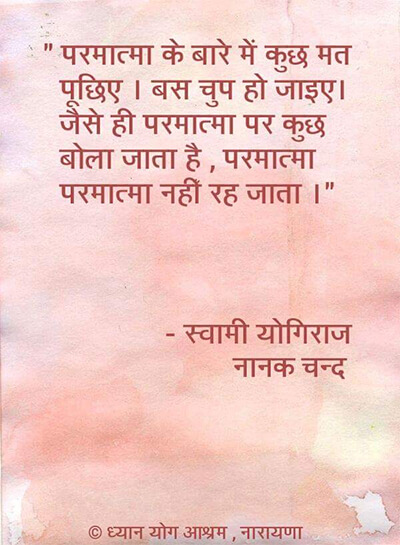 " परमात्मा के बारे में कुछ मत
पूछिए । बस चुप हो जाइए।
जैसे ही परमात्मा पर कुछ
बोला जाता है , परमात्मा
परमात्मा नहीं रह जाता ।"
- स्वामी योगिराज
नानक चन्द
© ध्यान योग आश्रम , नारायणा